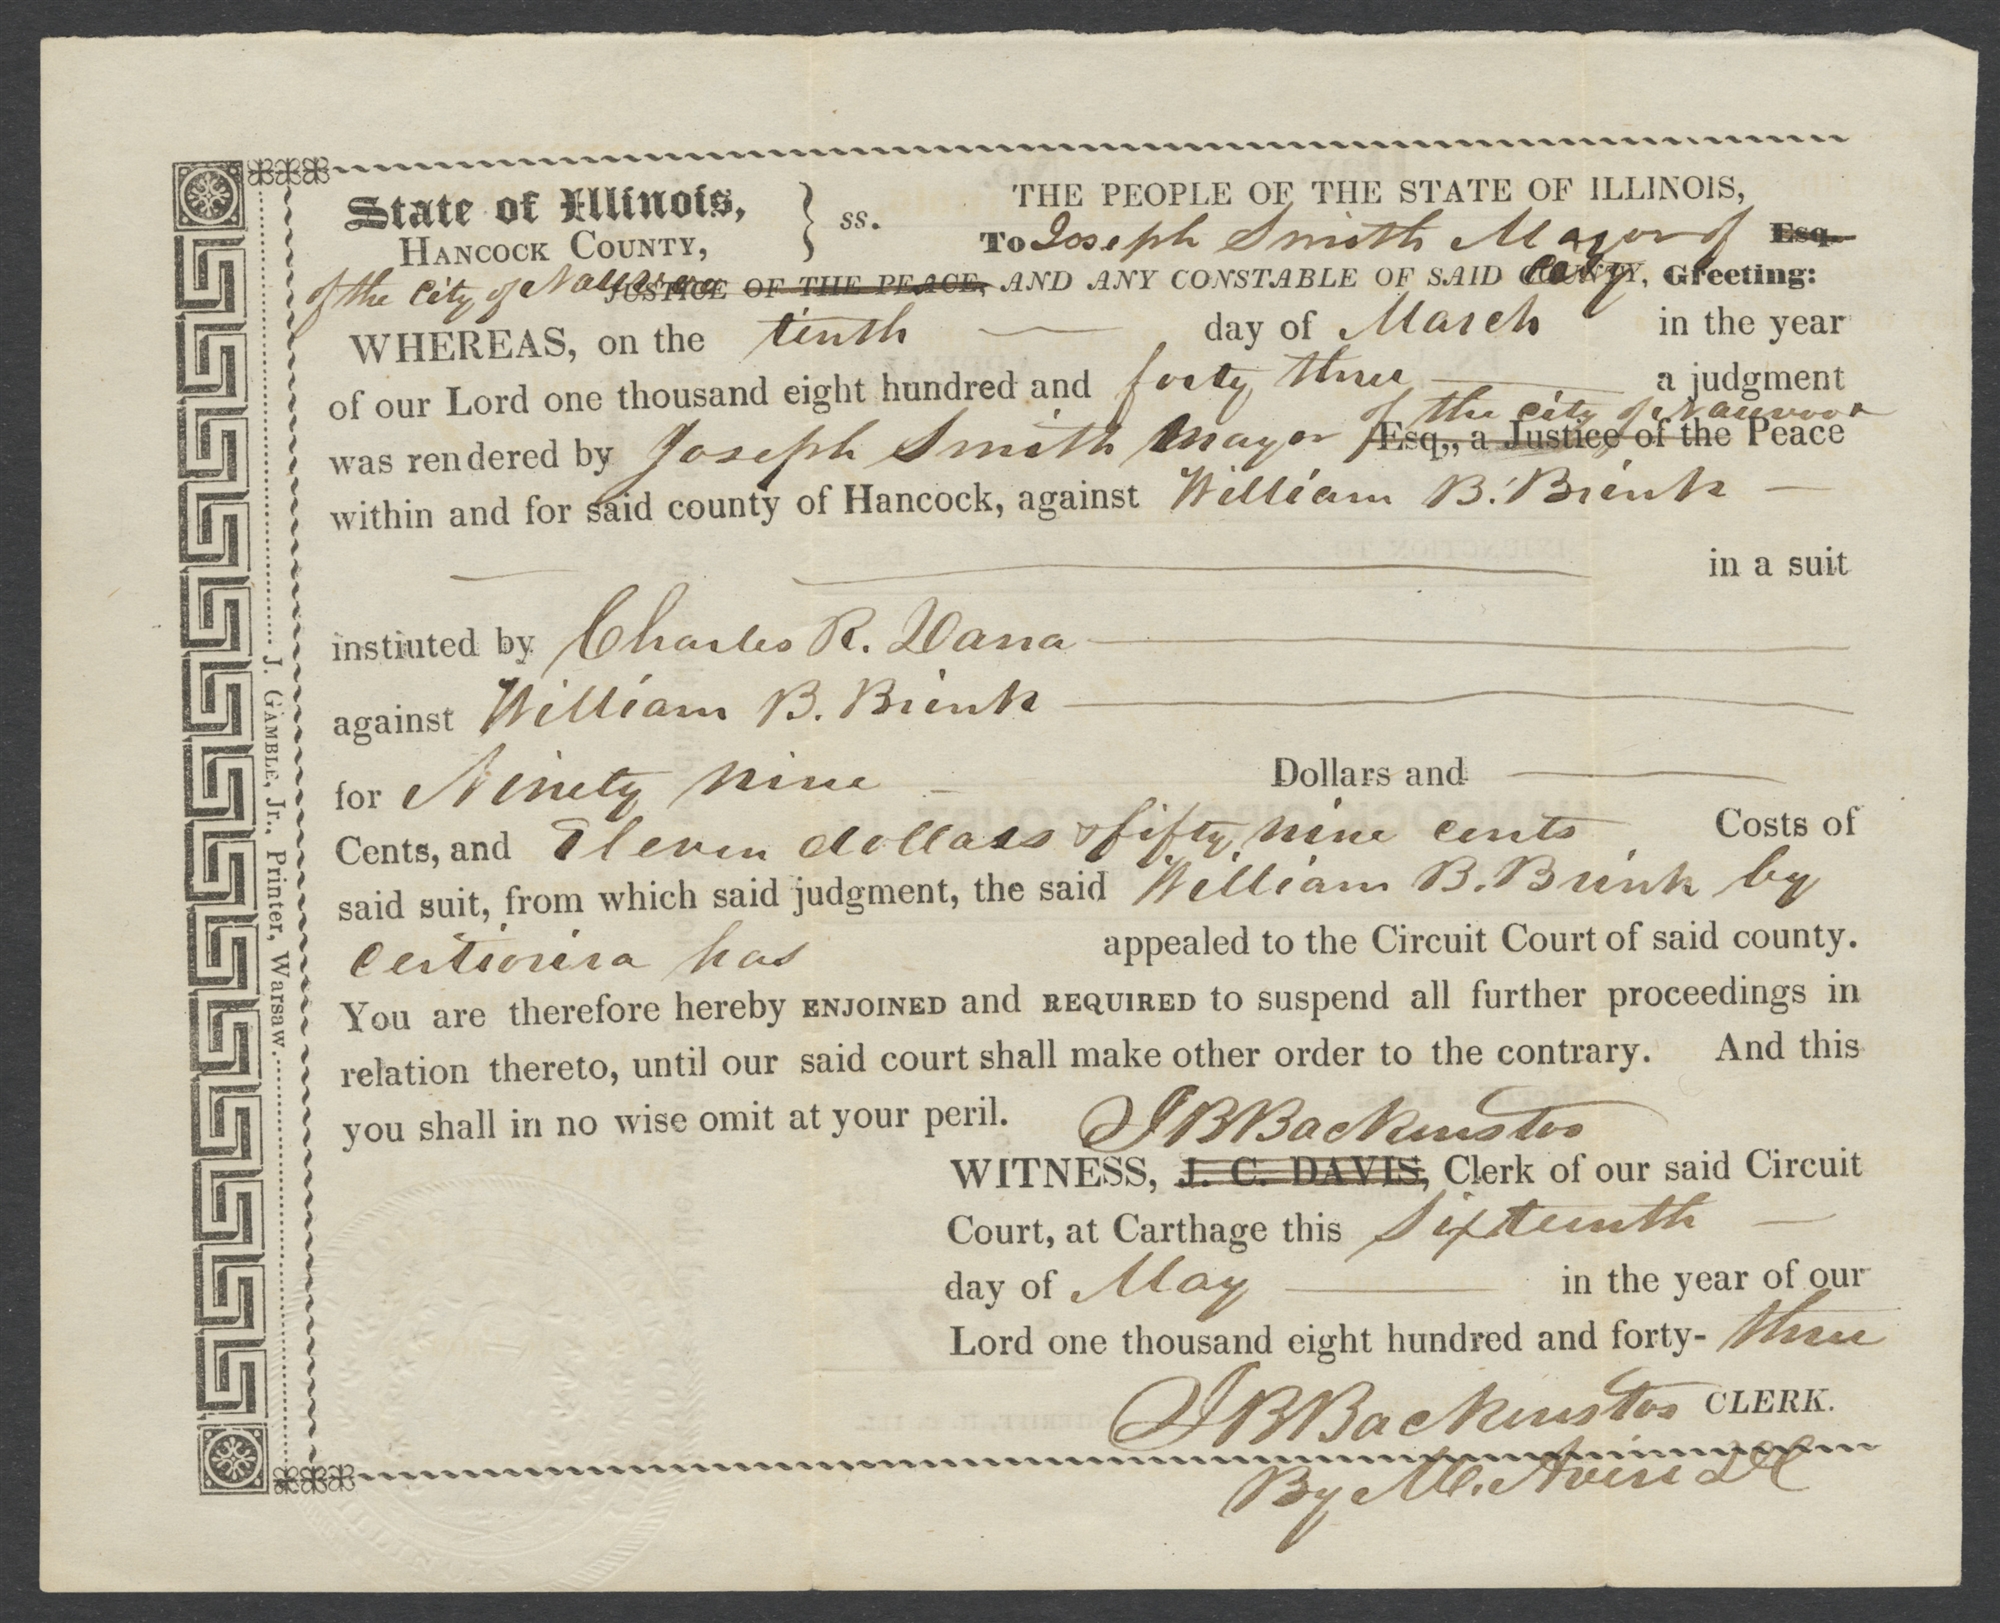 State of Illinois, } ss. THE PEOPLE OF THE STATE OF ILLINOIS,
HANCOCK COUNTY, To Joseph Smith Mayor of Esq.
of the City of Nauvoo JUSTICE OF THE PEACE, AND ANY CONSTABLE OF SAID COUNTY, City Greeting:
WHEREAS, on the tenth day of March in the year
of our Lord one thousand eight hundred and forty three a judgment
of the city of Nauvoo
was rendered by Joseph Smith Mayor Esq,, a Justice of the Peace
within and for said county of Hancock, against William B. Brink
in a suit
instiuted by Charles R. Dana
against William B. Brink
for Ninety nine Dollars and
Cents, and Eleven dollars & fifty nine cents Costs of
said suit, from which said judgment, the said William B. Brink by
Certiorira has appealed to the Circuit Court of said county.
You are therefore hereby ENJOINED and REQUIRED to suspend all further proceedings in
relation thereto, until our said court shall make other order to the contrary. And this
you shall in no wise omit at your peril.
J B Backenstos
WITNESS, J. C. DAVIS, Clerk of our said Circuit
Court, at Carthage this Sixteenth
day of May in the year of our
Lord one thousand eight hundred and forty- three
J B Backenstos CLERK.
By M. Avise DC
J. GAMBLE, Jr., Printer, Warsaw.
ILLINOIS